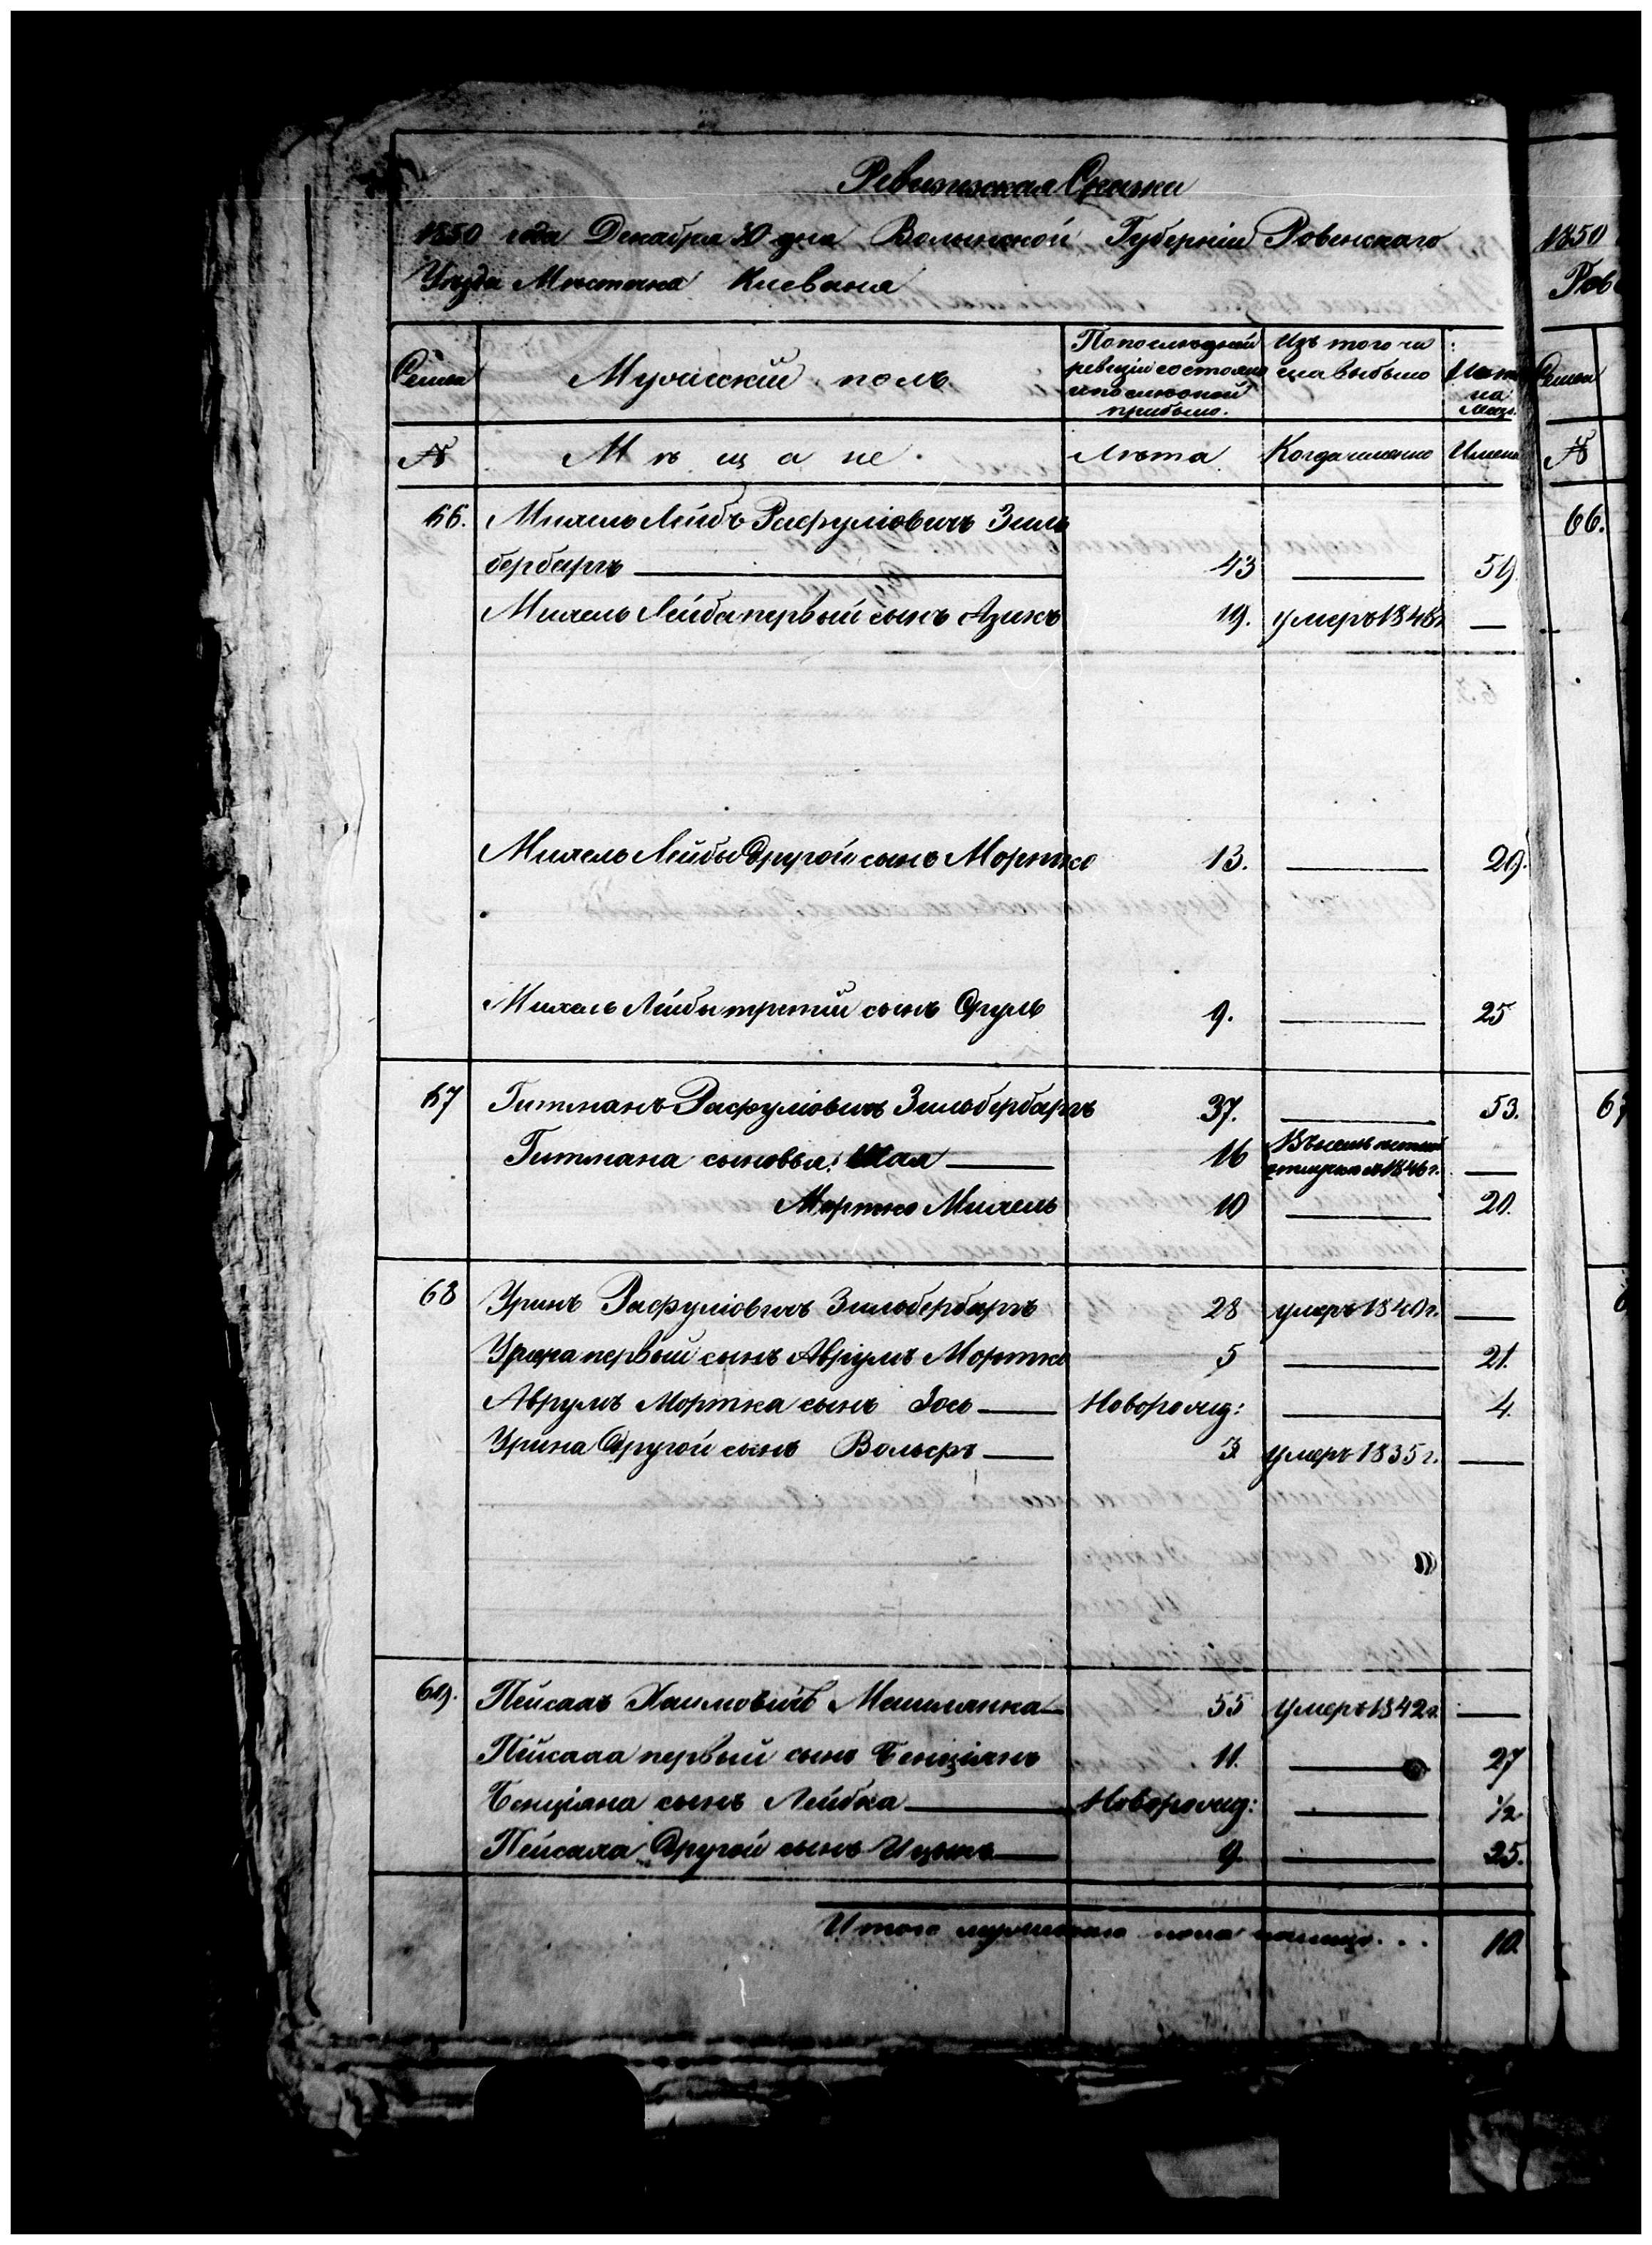 Ревижская Сказка
1850 года Декабря 30 дня Волынской Губерніи Ровенскаго
Уезда Местечка Клеваня
Семьи
Мужескій полъ
По последней
ревизіи состояло
и после оной
прибыло.
Изъ того чи
сла выбыло
на
лицо.
№
Мѣщане.
Лѣта
Когда именно
66. Михель Лейбъ Расфуліовичъ Зиль
бербаргъ 43 59.
Михель Лейба первый сынъ Азикъ 19. умеръ 1848 г.
Михель Лейбы Другой сынъ Мортко 13. 29.
Михель Лейбы третій сынъ Сруль 9. 25
67 Гитманъ Расфуліовичъ Зильбербаргъ 37. 53.
Гитмана сыновья: Шая 16 1846 г.
Мортко Михель 10 20.
68 Уринъ Расфуліовичъ Зильбербаргъ 28 умеръ 1840 г.
Урина первый сынъ Аврумъ Мортко 5 21.
Аврумъ Мортка сынъ Іось Новорожд: 4.
Урина Другой сынъ Вольфъ 3 умеръ 1835 г.
69. Пейсахъ Хаимовичъ 55 умеръ 1842 г.
Пейсаха первый сынъ Бенціянъ 11. 27
Бенціяна сынъ Лейбка Новорожд: 1/2
Пейсаха Другой сынъ Ицыкъ 9. 25.
Итого мужескаго пола налицо... 10.
1850
Ров
Семьи
№
66.
67